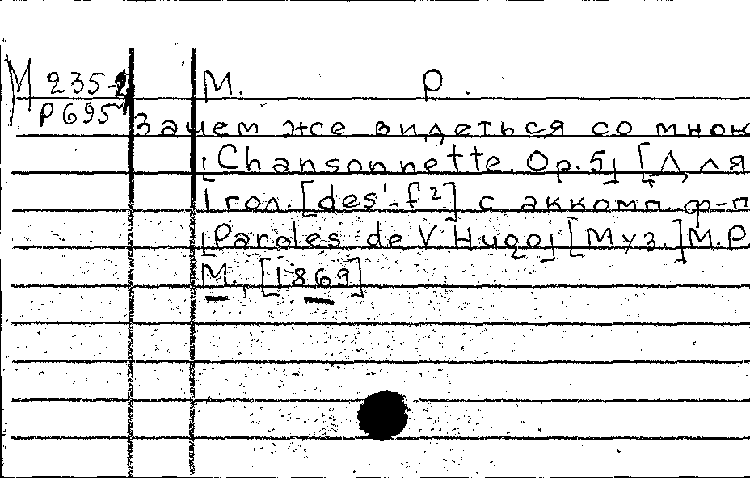 М 235-2 М. Р.
Р695
Зачем же видеться со мною
[Chansonnette. Op. 5] [Для
1 гол. [des'-f²] с аккомп. ф-п
[Paroles de V. Hugo] [Муз.] М.Р.
М., [1869]